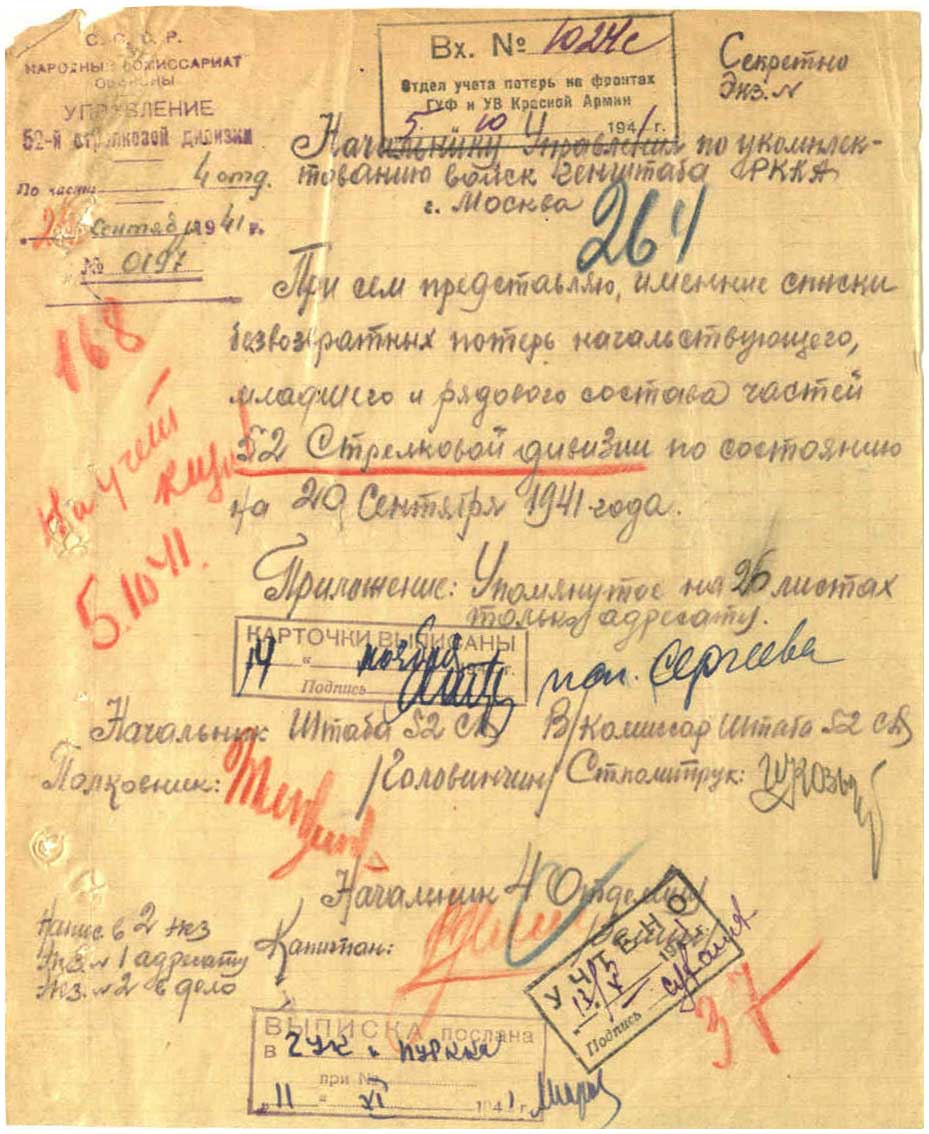 С. С. С. Р.
НАРОДНЫЙ КОМИССАРИАТ
ОБОРОНЫ
УПРАВЛЕНИЕ
52-й стрелковой дивизии
По части 4 отд.
сентяб 1941 г.
№ 0197
Вх. № 1024с
Отдел учета потерь на фронтах
ГУФ и УВ Красной Армии
5. 10 1941 г.
Секретно
Экз. №
Начальнику Управления по укомплек-
тованию войск Генштаба РККА
г. Москва
264
При сем представляю, именные списки
безвозвратных потерь начальствующего,
младшего и рядового состава частей
52 Стрелковой дивизии по состоянию
на 20 Сентября 1941 года.
168
На учет
5.10 41.
Приложение: Упомянутое на 26 листах
только адресату.
КАРТОЧКИ ВЫПИСАНЫ
14 " ноября 194 г.
Подпись
пол. Сергеева
Начальник Штаба 52 СД В/Комиссар Штаба 52 СД
Полковник: /Головинчин/ Ст политрук:
Началник 4 Отделния
Капитан:
Напис в 2 экз
Экз. № 1 адресату
Экз. № 2 в дело
УЧТЕНО
13/X 1941 г.
Подпись
37
ВЫПИСКА послана
в ГУК и ПУРККА
при №
" 11 " XI 1941 г.